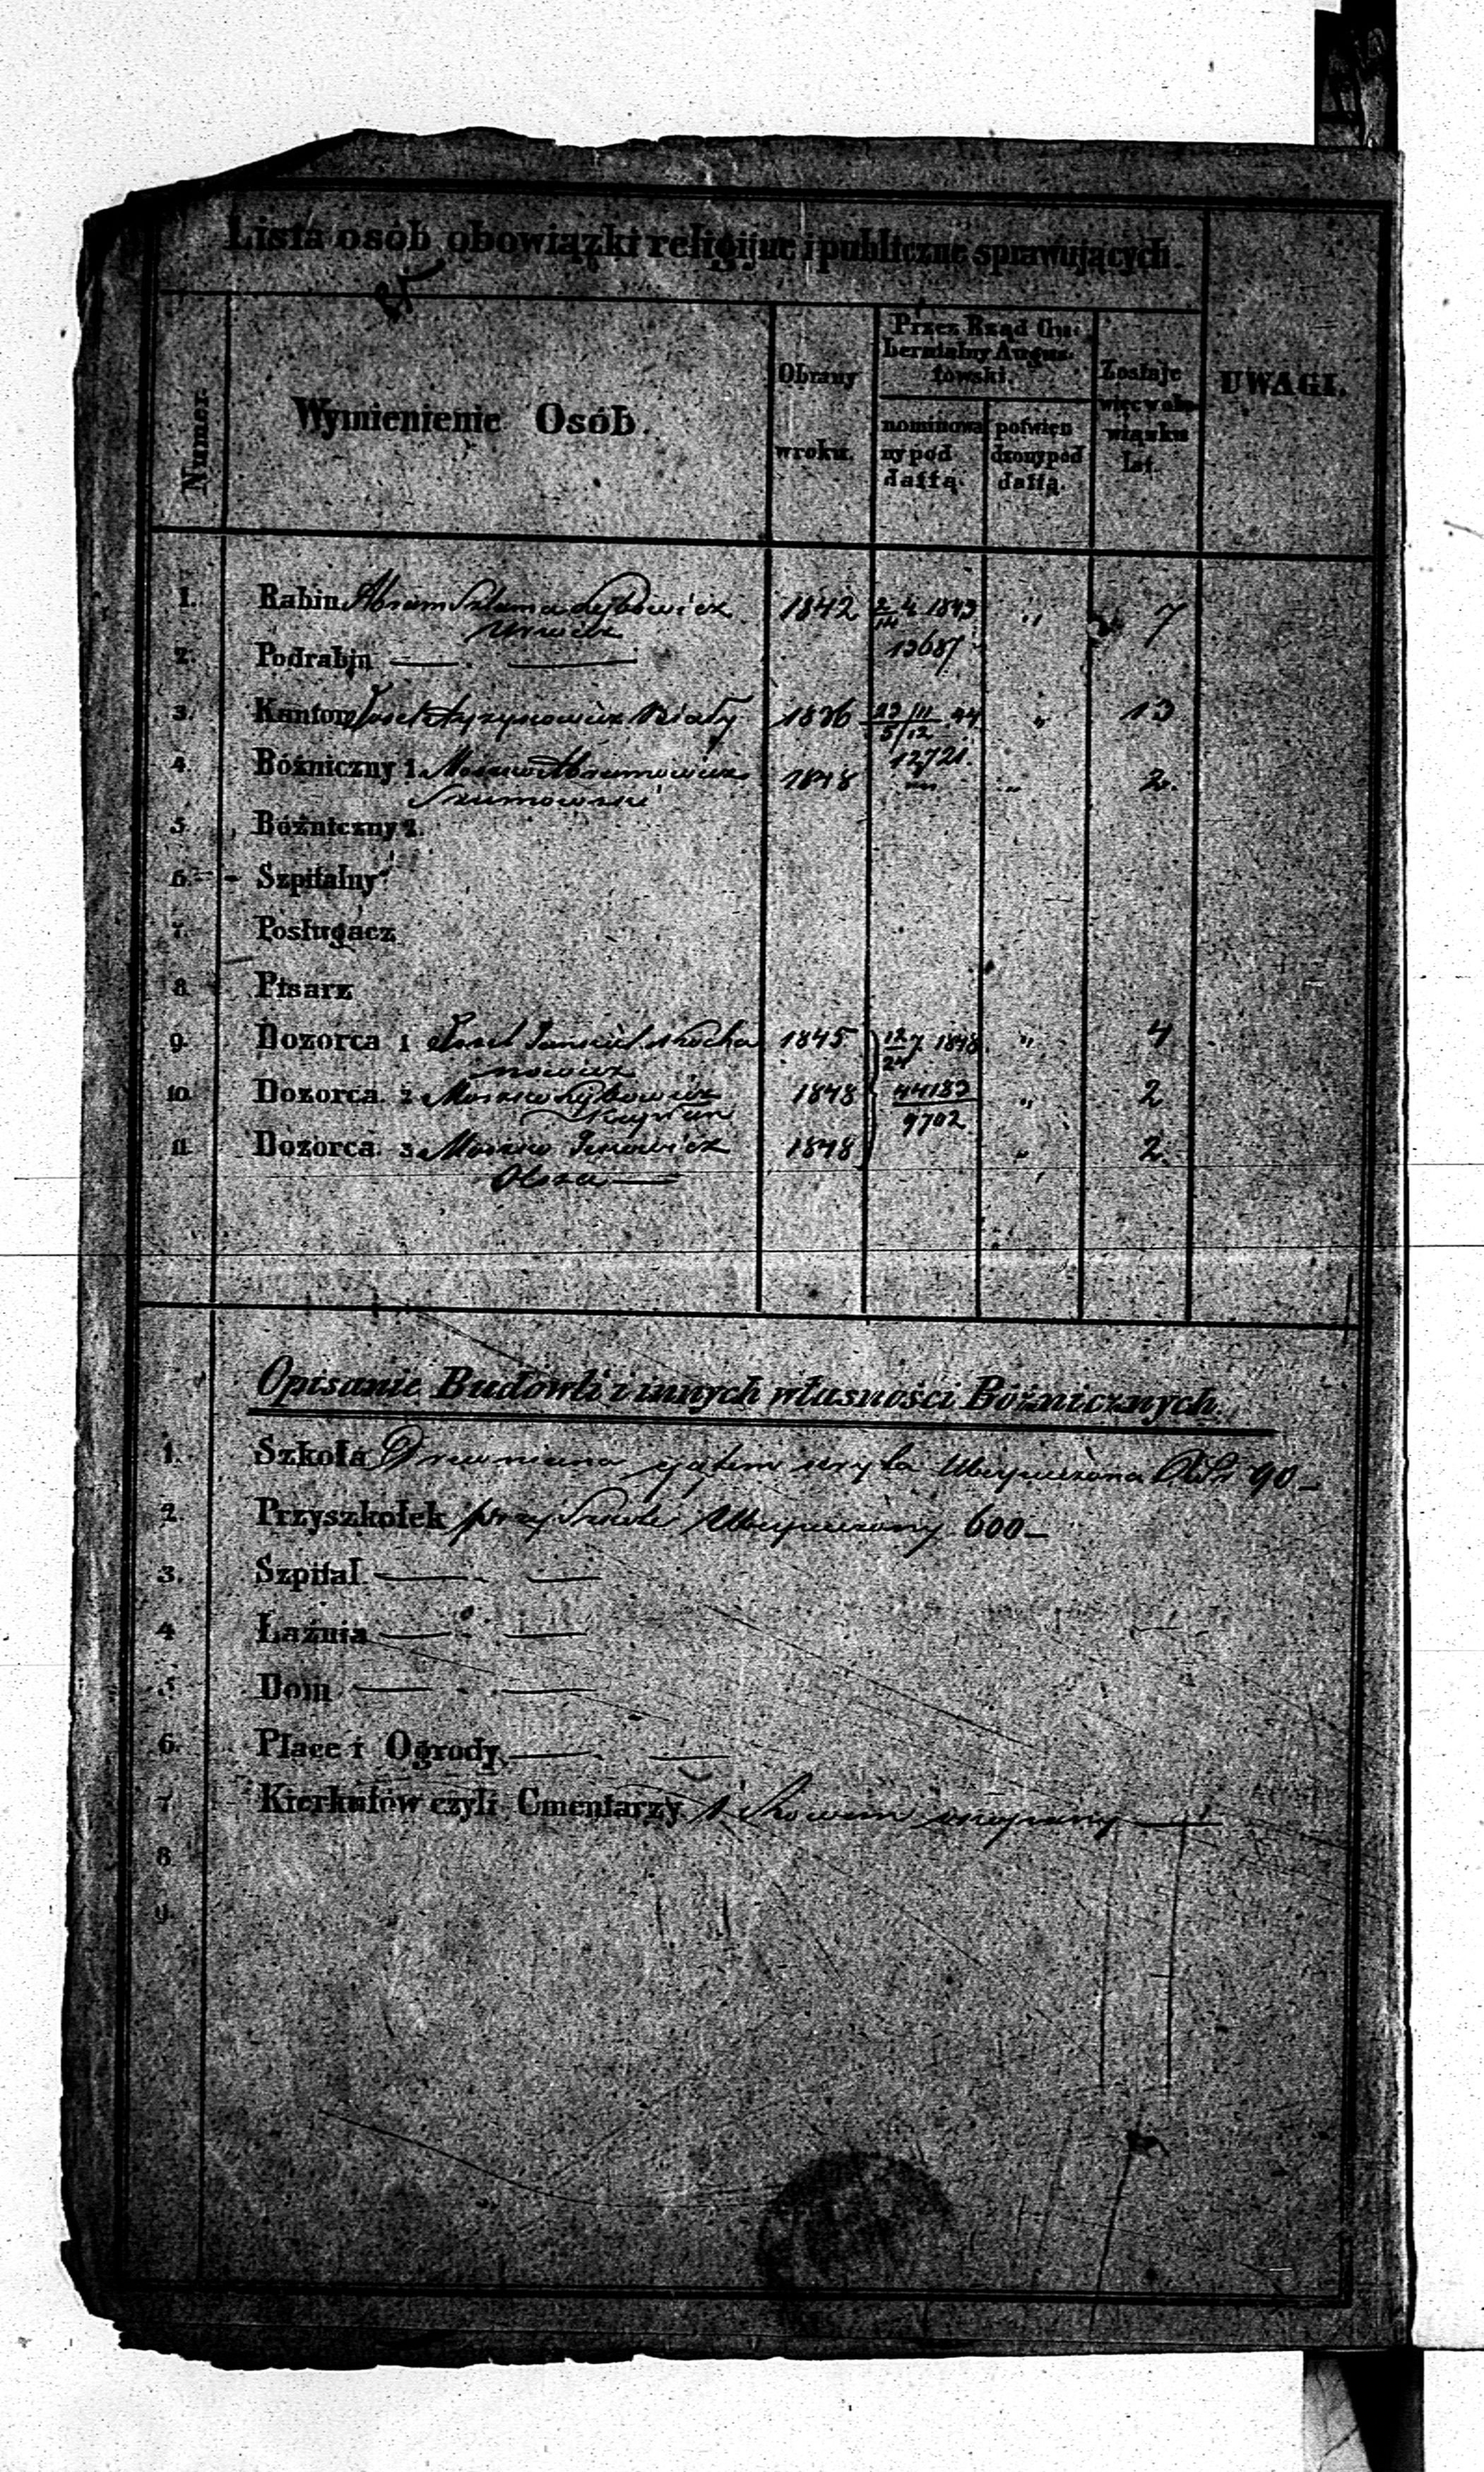 Lista osób obowiązki religijne i publiczne sprawujących.
Numer.
Wymienienie Osób.
Obrany w roku.
Przez Rząd Gubernialny Augustowski.
nominowany pod dattą.
potwierdzony pod dattą.
Zostaje więc w obowiązku lat.
UWAGI.
1. Rabin Abram Szlama Leybowicz 1842 2/14 4 1843 „ 7
13687
2. Podrabin — —
3. Kantor Josel Biały 1836 23/11 5/12 44 „ 13
12721.
4. Bóżniczny 1. Moszko Abramowicz 1848 „ „ 2.
Szumowski
5. Bóżniczny 2.
6. Szpitalny
7. Posługacz
8. Pisarz
9. Dozorca 1 Josel Jankiel Kocha 1845 12/24 7 1848 „ 4
nowicz
10. Dozorca 2 Moszko Leybowicz 1848 44183 „ 2
9702
11. Dozorca 3 Moszko 1848 „ 2.
Opisanie Budowli i innych własności Bóżnicznych.
1. Szkoła Drewniana Ubezpieczona 90 —
2. Przyszkołek przy Szkole Ubezpieczony 600 —
3. Szpital — —
4. Łaźnia — —
5. Dom — —
6. Place i Ogrody — —
7. Kierkutów czyli Cmentarzy 1 —
8.
9.